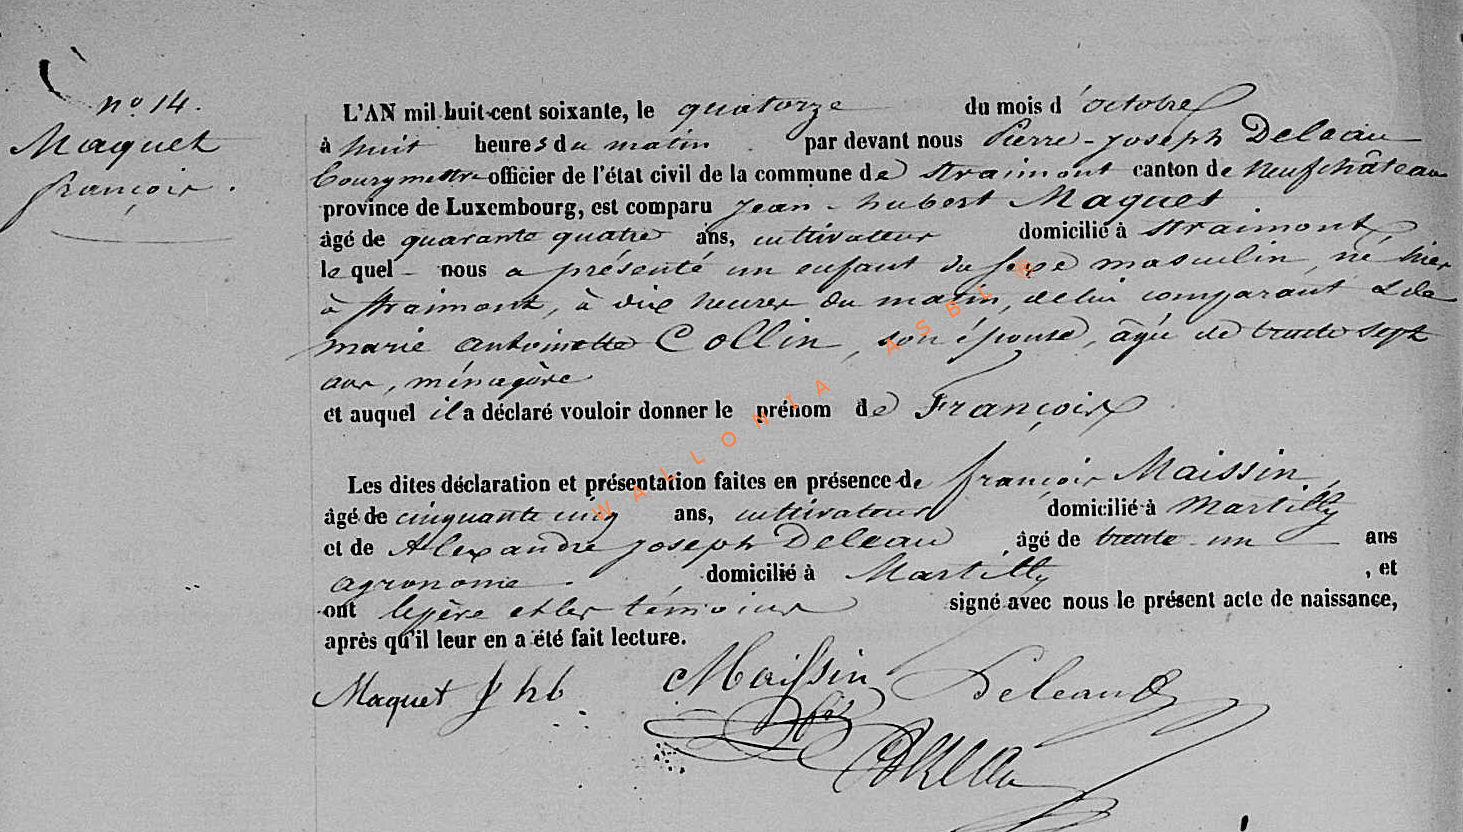 n° 14.
Maquet
françois.
L'AN mil huit-cent soixante, le quatorze du mois d'octobre
à huit heures du matin par devant nous Pierre-Joseph Deleau
bourgmestre officier de l'état civil de la commune de Straimont canton de Neufchâteau
province de Luxembourg, est comparu Jean-hubert Maquet
âgé de quarante quatre ans, cultivateur domicilié à Straimont,
le quel nous a présenté un enfant du sexe masculin, né hier
à Straimont, à dix heures du matin, de lui comparant & de
marie antoinette Collin, son épouse, âgée de trente sept
ans, ménagère
et auquel il a déclaré vouloir donner le prénom de François
Les dites déclaration et présentation faites en présence de françois Maissin,
âgé de cinquante cinq ans, cultivateur domicilié à Martilly
et de Alexandre Joseph Deleau, âgé de trente un ans
agronome domicilié à Martilly, et
ont le père et les témoins signé avec nous le présent acte de naissance,
après qu'il leur en a été fait lecture.
Maquet J hb Maissin Deleau
WALLONIA ASBL ©